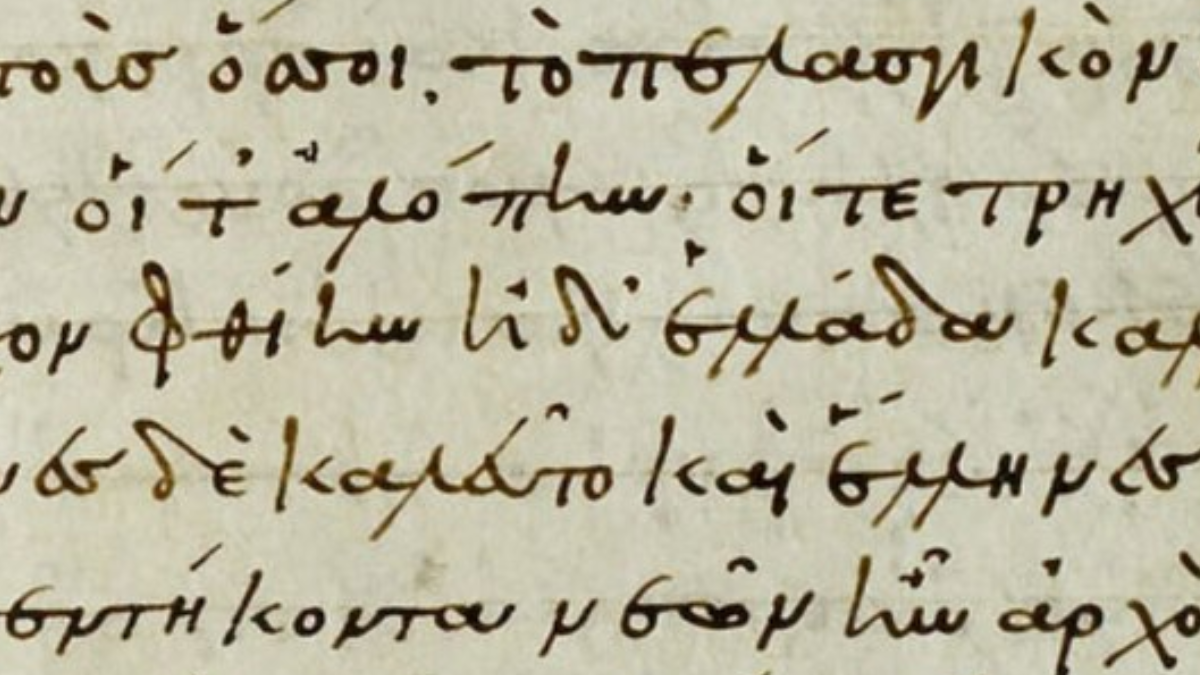 τοὺσ ὅσσοι. τὸ πελασγικὸν
ν οἵ τ' ἀλόπην· οἵ τε τρηχ
ον φθίην ἠ δ' ἑλλάδα καλ
νες δὲ καλεῦντο καὶ ἕλληνες
εντήκοντα νεῶν ἦν ἀρχὸ